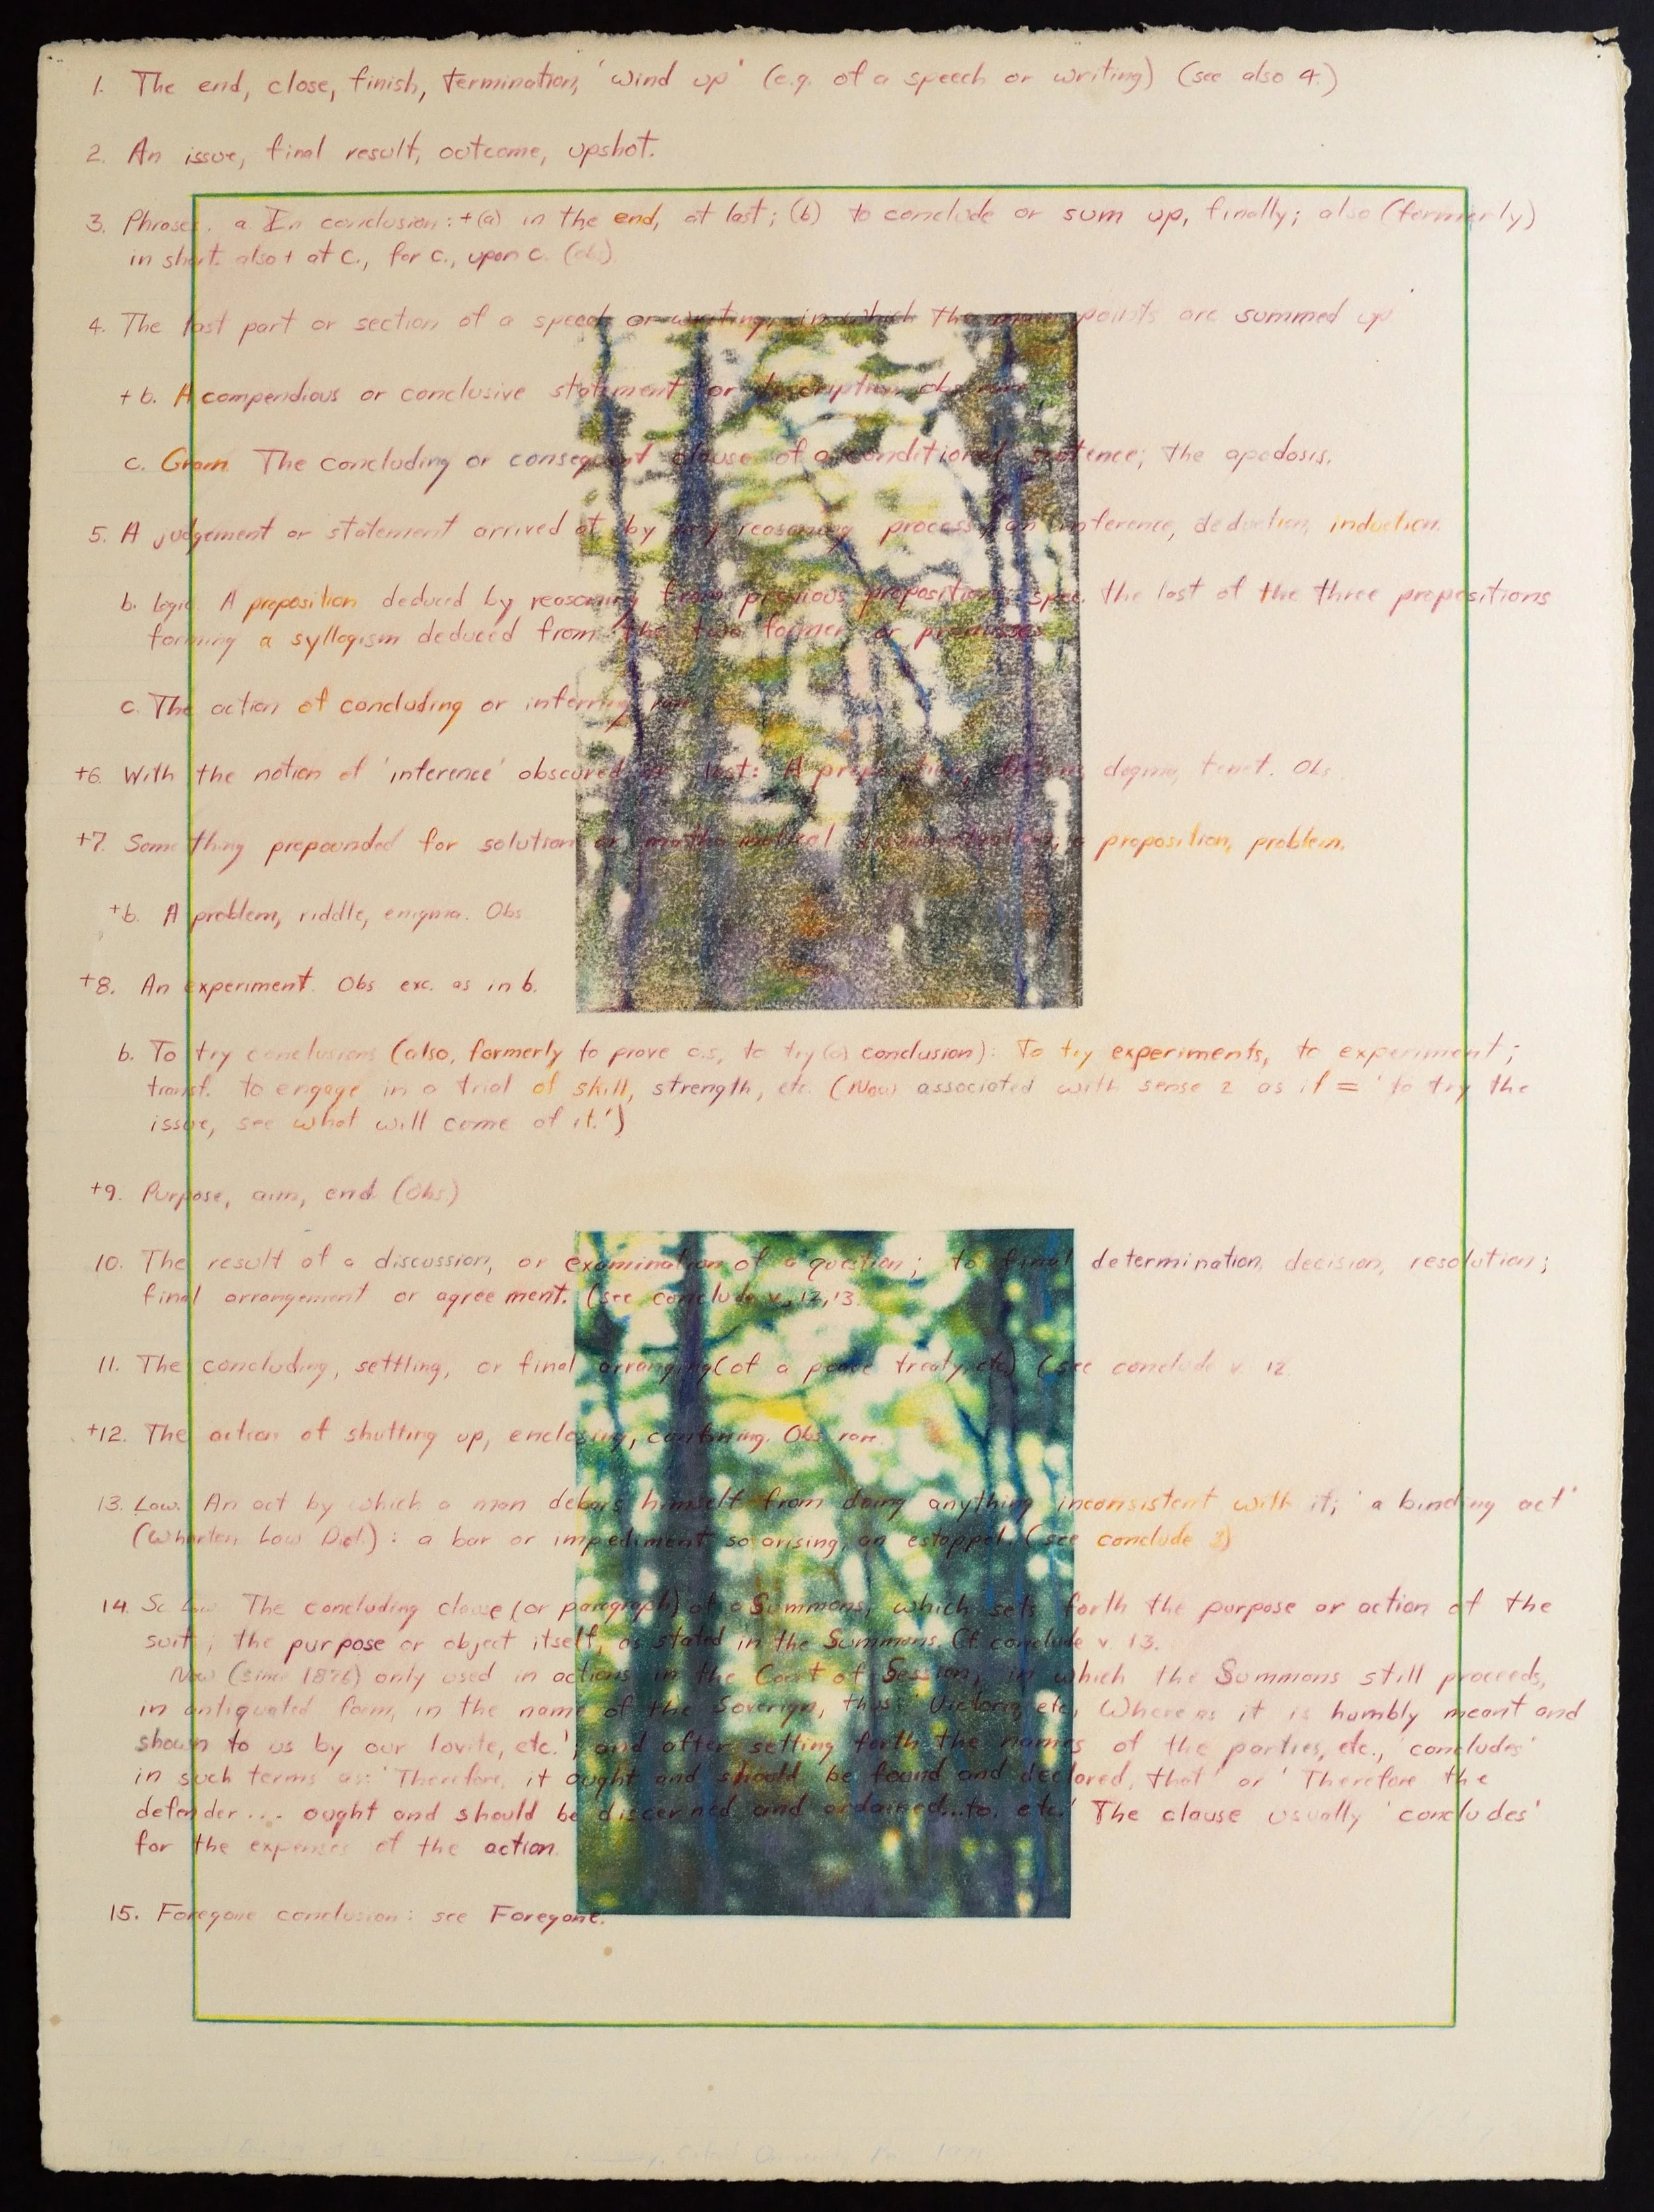 1. The end, close, finish, termination, 'wind up' (e.g. of a speech or writing) (see also 4.)
2. An issue, final result, outcome, upshot.
3. Phrases. a. In conclusion: +(a) in the end, at last; (b) to conclude or sum up, finally; also (formerly)
in short. also + at c., for c., upon c. (obs).
4. The last part or section of a speech or writing, in which the main points are summed up
+ b. A compendious or conclusive statement or description. obs. rare
c. Gram. The concluding or consequent clause of a conditional sentence; the apodosis.
5. A judgement or statement arrived at by any reasoning process; an inference, deduction, induction.
b. Logic. A proposition deduced by reasoning from previous propositions; spec. the last of the three propositions
forming a syllogism deduced from the two former or premisses
c. The action of concluding or inferring. rare
+6. With the notion of 'inference' obscured or lost: A proposition, dictum, dogma, tenet. Obs.
+7. Something propounded for solution or mathematical demonstration; a proposition, problem.
+b. A problem, riddle, enigma. Obs
+8. An experiment. Obs exc. as in b.
b. To try conclusions (also, formerly to prove c.s, to try (a) conclusion): To try experiments, to experiment;
transf. to engage in a trial of skill, strength, etc. (Now associated with sense 2 as if = 'to try the
issue, see what will come of it.')
+9. Purpose, aim, end. (Obs)
10. The result of a discussion, or examination of a question; to final determination, decision, resolution;
final arrangement or agreement. (see conclude v., 12, 13.
11. The concluding, settling, or final arranging (of a peace treaty, etc) (see conclude v. 12.
+12. The action of shutting up, enclosing, confining. Obs. rare.
13. Law. An act by which a man debars himself from doing anything inconsistent with it; 'a binding act'
(Wharton Law Dict.): a bar or impediment so arising, an estoppel. (see conclude 3)
14. Sc. Law. The concluding clause (or paragraph) of a Summons, which sets forth the purpose or action of the
suit; the purpose or object itself, as stated in the Summons. Cf. conclude v. 13.
Now (since 1876) only used in actions in the Court of Session, in which the Summons still proceeds,
in antiquated form, in the name of the Soverign, thus: 'Victoria, etc, Whereas it is humbly meant and
shown to us by our lovite, etc.'; and after setting forth the names of the parties, etc., 'concludes'
in such terms as: 'Therefore, it ought and should be found and declared, that' or 'Therefore the
defender ... ought and should be discerned and ordained...to etc.' The clause usually 'concludes'
for the expenses of the action.
15. Foregone conclusion: see Foregone.